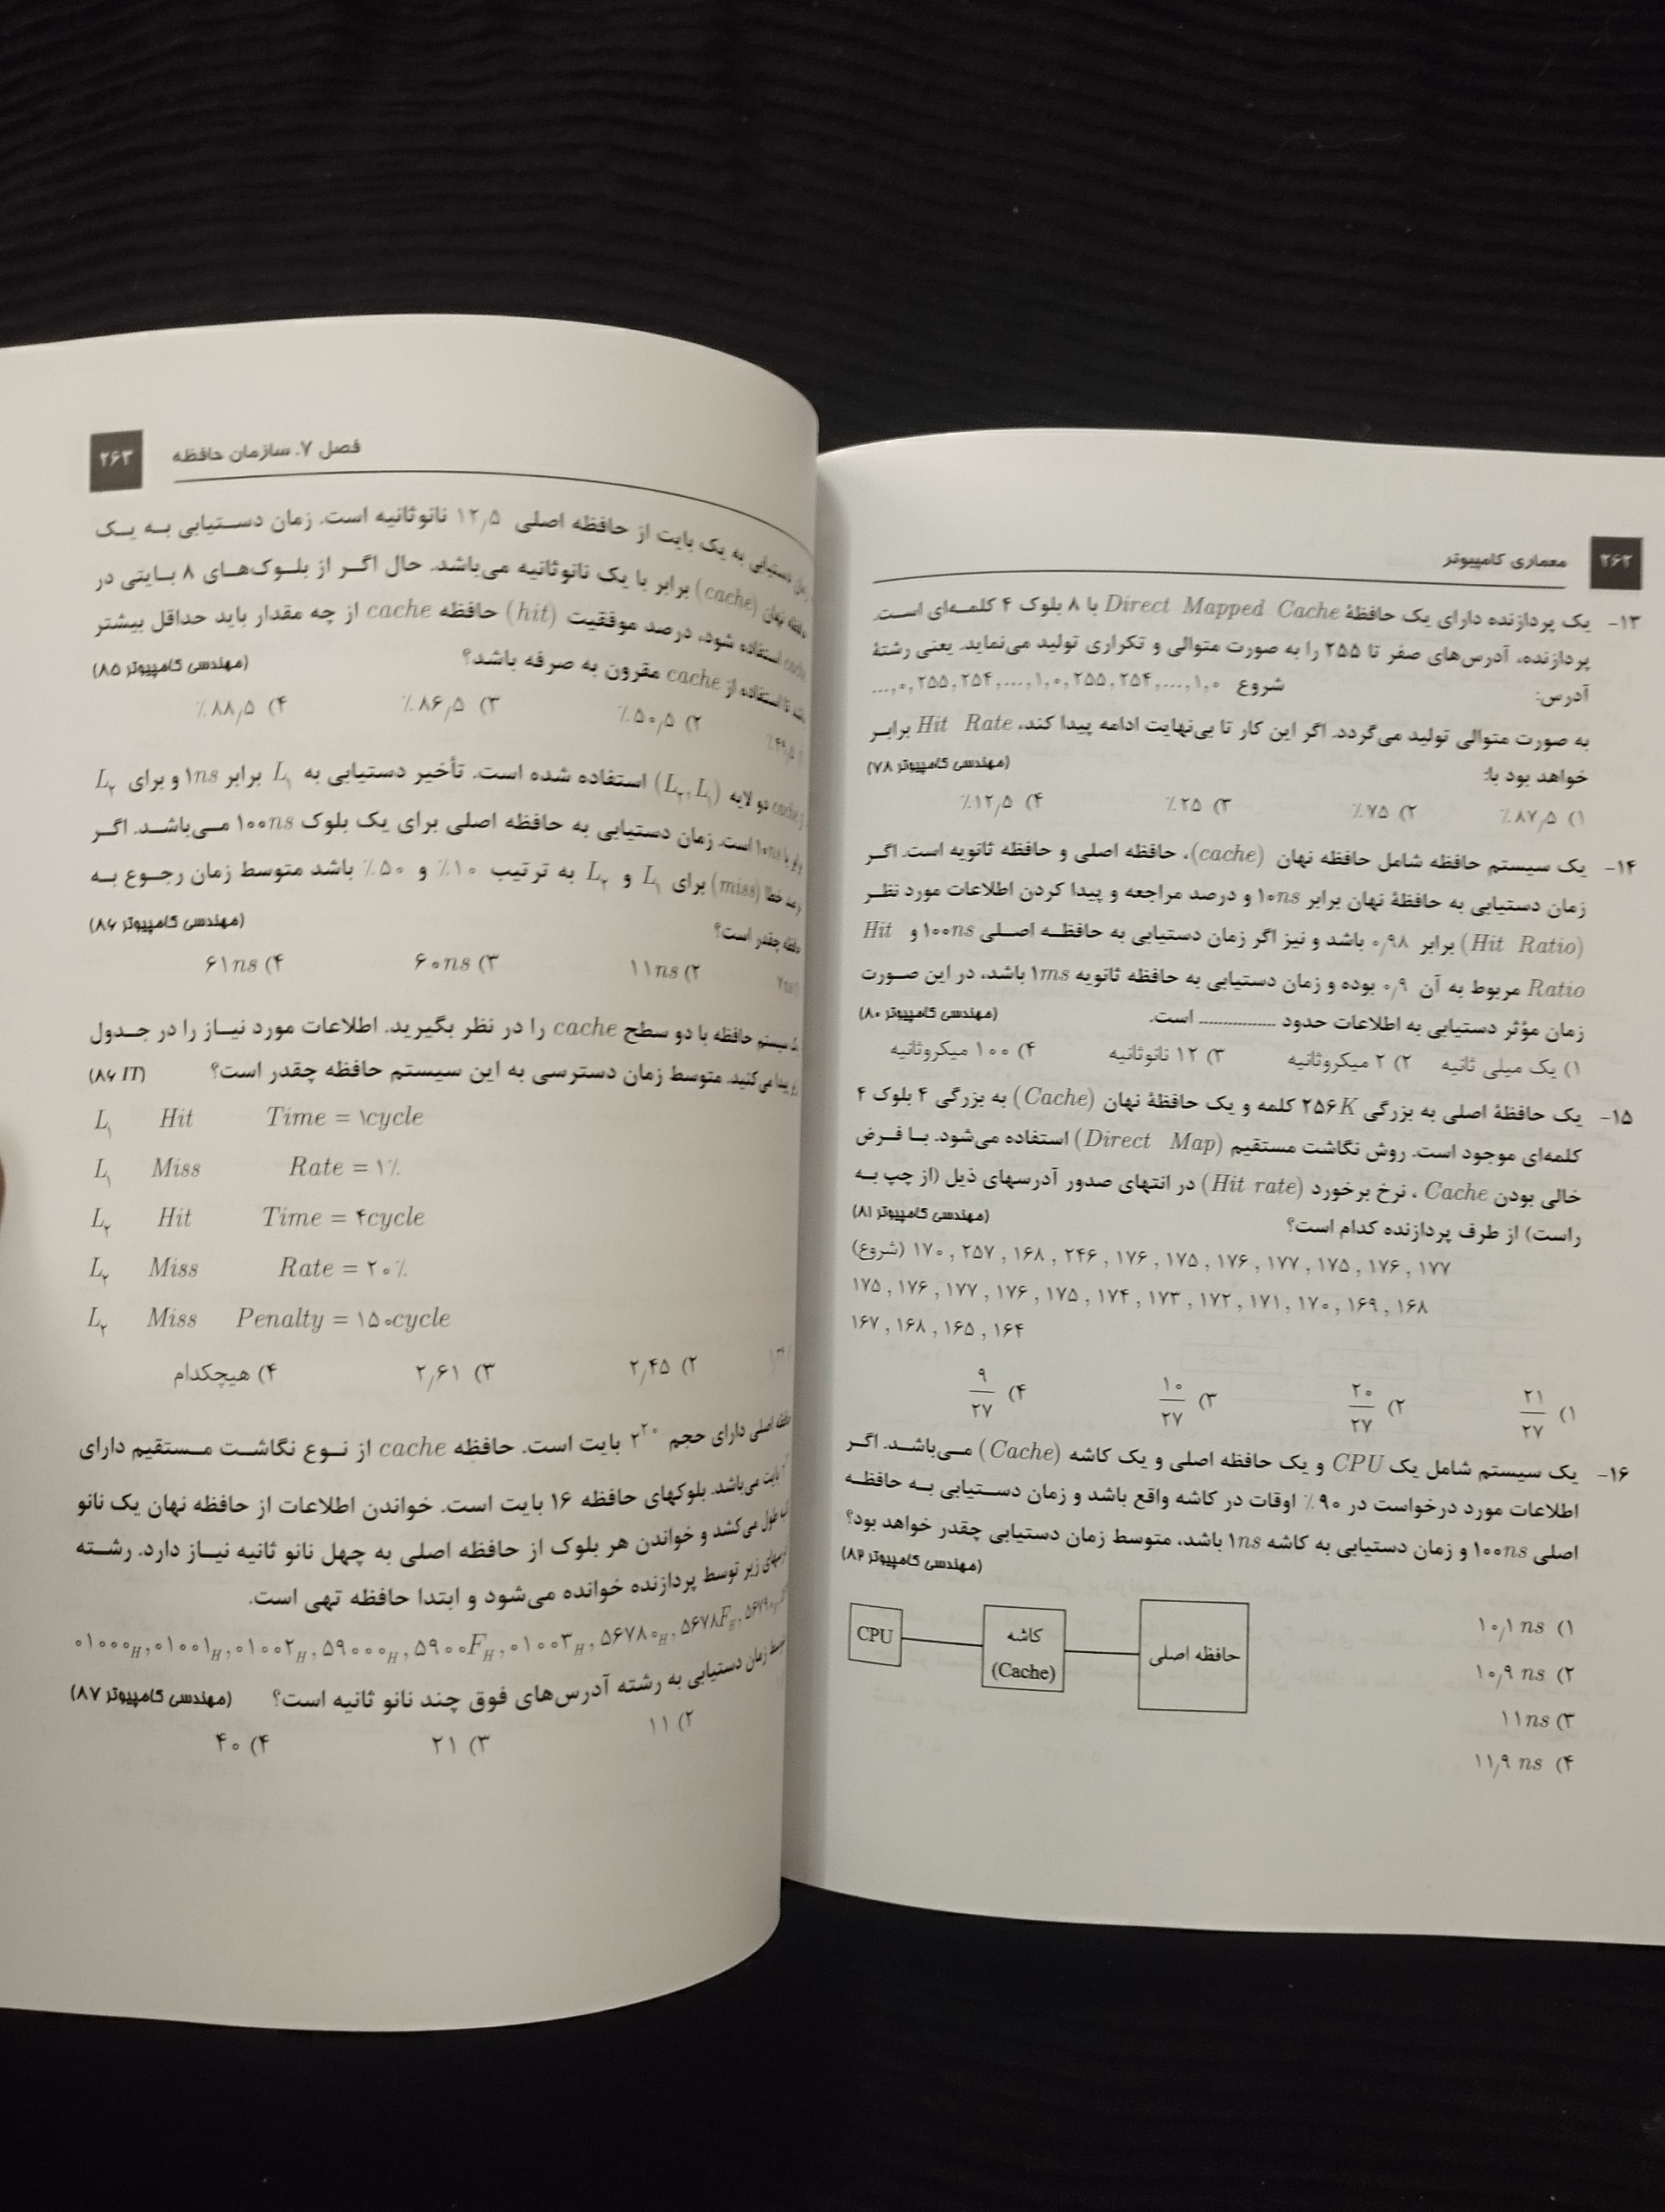 ۲۶۲
معماری کامپیوتر
۱۳- یک پردازنده دارای یک حافظهٔ Direct Mapped Cache با ۸ بلوک ۴ کلمه‌ای است.
پردازنده، آدرس‌های صفر تا ۲۵۵ را به صورت متوالی و تکراری تولید می‌نماید. یعنی رشتهٔ
آدرس: شروع ۰,۱,...,۲۵۴,۲۵۵,۰,۱,...,۲۵۴,۲۵۵,۰,...
به صورت متوالی تولید می‌گردد. اگر این کار تا بی‌نهایت ادامه پیدا کند، Hit Rate برابر
خواهد بود با: (مهندسی کامپیوتر ۷۸)
۱) ۸۷٫۵٪ ۲) ۷۵٪ ۳) ۲۵٪ ۴) ۱۲٫۵٪
۱۴- یک سیستم حافظه شامل حافظه نهان (cache)، حافظه اصلی و حافظه ثانویه است. اگر
زمان دستیابی به حافظهٔ نهان برابر ۱۰ns و درصد مراجعه و پیدا کردن اطلاعات مورد نظر
(Hit Ratio) برابر ۰٫۹۸ باشد و نیز اگر زمان دستیابی به حافظه اصلی ۱۰۰ns و Hit
Ratio مربوط به آن ۰٫۹ بوده و زمان دستیابی به حافظه ثانویه ۱ms باشد، در این صورت
زمان مؤثر دستیابی به اطلاعات حدود ................ است. (مهندسی کامپیوتر ۸۰)
۱) یک میلی ثانیه ۲) ۲ میکروثانیه ۳) ۱۲ نانوثانیه ۴) ۱۰۰ میکروثانیه
۱۵- یک حافظهٔ اصلی به بزرگی ۲۵۶K کلمه و یک حافظهٔ نهان (Cache) به بزرگی ۴ بلوک ۴
کلمه‌ای موجود است. روش نگاشت مستقیم (Direct Map) استفاده می‌شود. با فرض
خالی بودن Cache ، نرخ برخورد (Hit rate) در انتهای صدور آدرسهای ذیل (از چپ به
راست) از طرف پردازنده کدام است؟ (مهندسی کامپیوتر ۸۱)
(شروع) ۱۷۰ , ۲۵۷ , ۱۶۸ , ۲۴۶ , ۱۷۶ , ۱۷۵ , ۱۷۶ , ۱۷۷ , ۱۷۵ , ۱۷۶ , ۱۷۷
۱۷۵ , ۱۷۶ , ۱۷۷ , ۱۷۶ , ۱۷۵ , ۱۷۴ , ۱۷۳ , ۱۷۲ , ۱۷۱ , ۱۷۰ , ۱۶۹ , ۱۶۸
۱۶۷ , ۱۶۸ , ۱۶۵ , ۱۶۴
۱) ۲۱/۲۷ ۲) ۲۰/۲۷ ۳) ۱۰/۲۷ ۴) ۹/۲۷
۱۶- یک سیستم شامل یک CPU و یک حافظه اصلی و یک کاشه (Cache) می‌باشد. اگر
اطلاعات مورد درخواست در ۹۰٪ اوقات در کاشه واقع باشد و زمان دستیابی به حافظه
اصلی ۱۰۰ns و زمان دستیابی به کاشه ۱ns باشد، متوسط زمان دستیابی چقدر خواهد بود؟
(مهندسی کامپیوتر ۸۲)
۱) ۱۰٫۱ ns
۲) ۱۰٫۹ ns
۳) ۱۱ ns
۴) ۱۱٫۹ ns
CPU
کاشه
(Cache)
حافظه اصلی
فصل ۷. سازمان حافظه
۲۶۳
دستیابی به یک بایت از حافظه اصلی ۱۲٫۵ نانوثانیه است. زمان دستیابی به یک
نهان (cache) برابر با یک نانوثانیه می‌باشد. حال اگر از بلوک‌های ۸ بایتی در
استفاده شود، درصد موفقیت (hit) حافظه cache از چه مقدار باید حداقل بیشتر
تا استفاده از cache مقرون به صرفه باشد؟ (مهندسی کامپیوتر ۸۵)
۲) ۵۰٫۵٪ ۳) ۸۶٫۵٪ ۴) ۸۸٫۵٪
cache دو لایه (L۲, L۱) استفاده شده است. تأخیر دستیابی به L۱ برابر ۱ns و برای L۲
است. زمان دستیابی به حافظه اصلی برای یک بلوک ۱۰۰ns می‌باشد. اگر
خطا (miss) برای L۱ و L۲ به ترتیب ۱۰٪ و ۵۰٪ باشد متوسط زمان رجوع به
حافظه چقدر است؟ (مهندسی کامپیوتر ۸۶)
۲) ۱۱ns ۳) ۶۰ns ۴) ۶۱ns
سیستم حافظه با دو سطح cache را در نظر بگیرید. اطلاعات مورد نیاز را در جدول
پیدا می‌کنید. متوسط زمان دسترسی به این سیستم حافظه چقدر است؟ (IT ۸۶)
L۱ Hit Time = ۱cycle
L۱ Miss Rate = ۱٪
L۲ Hit Time = ۴cycle
L۲ Miss Rate = ۲۰٪
L۲ Miss Penalty = ۱۵۰cycle
۲) ۲٫۴۵ ۳) ۲٫۶۱ ۴) هیچکدام
حافظه اصلی دارای حجم ۲^۲۰ بایت است. حافظه cache از نوع نگاشت مستقیم دارای
بایت می‌باشد. بلوکهای حافظه ۱۶ بایت است. خواندن اطلاعات از حافظه نهان یک نانو
طول می‌کشد و خواندن هر بلوک از حافظه اصلی به چهل نانو ثانیه نیاز دارد. رشته
زیر توسط پردازنده خوانده می‌شود و ابتدا حافظه تهی است.
۰۱۰۰۰H, ۰۱۰۰۱H, ۰۱۰۰۲H, ۵۹۰۰۰H, ۵۹۰۰FH, ۰۱۰۰۳H, ۵۶۷۸۰H, ۵۶۷۸FH, ۵۶۷۹۰H
زمان دستیابی به رشته آدرس‌های فوق چند نانو ثانیه است؟ (مهندسی کامپیوتر ۸۷)
۲) ۱۱ ۳) ۲۱ ۴) ۴۰